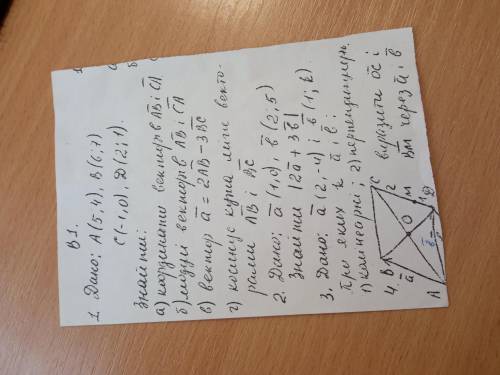 В 1.
1. Дано: A(5,4), B(6;7)
C(-1,0), D(2;1).
Знайти:
а) координати векторів AB і CA
б) модулі векторів AB і CA
в) вектор a = 2AB - 3BC
г) косинус кута між векто-
рами AB і BC
2. Дано: a (1,0), b (2;5)
Знайти |2a + 3b|
3. Дано: a (2,-4) і b (1; k)
При яких k a і b:
1) колінеарні; 2) перпендикулярн.
4. B C виразити OC і
a O 2 BM через a і b
M
1
A b D